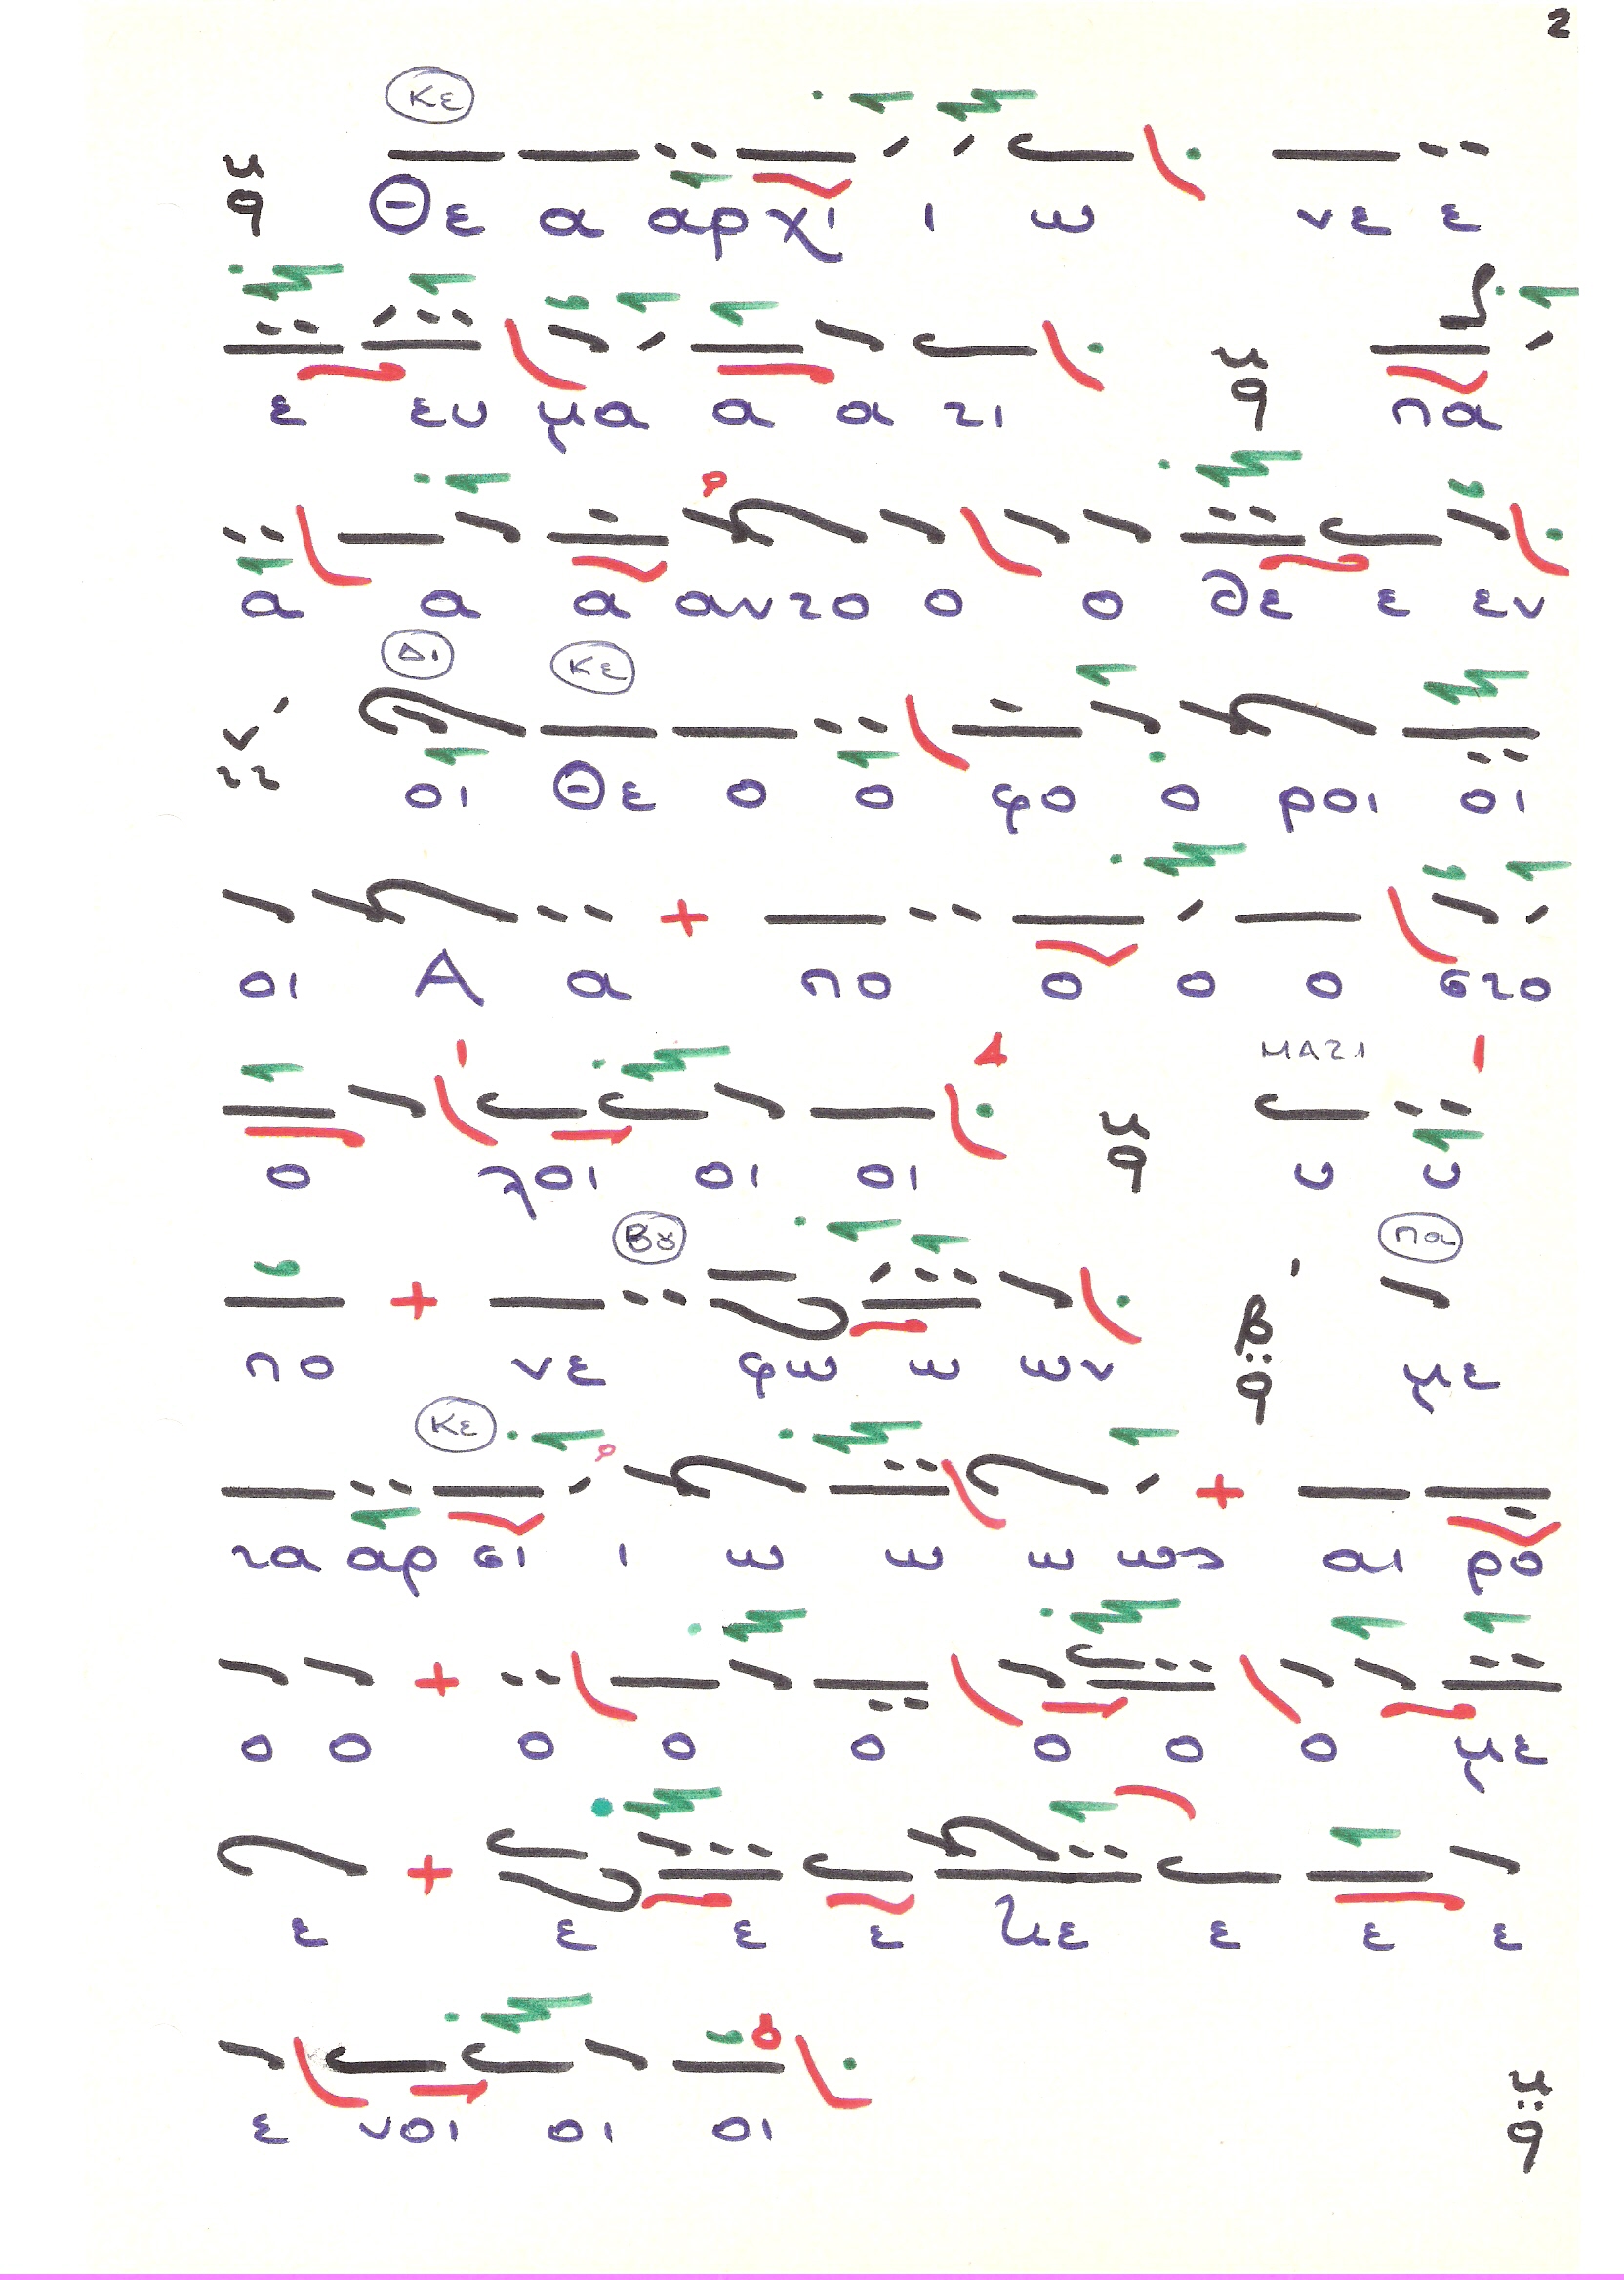 2
Κε
Θε α αρ χι ι ω νε ε
ε ευ μα α α τι πα
α α α αν το ο ο δε ε εν
Δι Κε
οι Θε ο ο φο ο ροι οι
οι Α α πο ο ο ο στο
ΜΑΖΙ
ο λοι οι οι υ υ
Βου Πα
πο νε φω ω ων με
Κε
τα αρ σι ι ω ω ω ως αι ρο
ο ο ο ο ο ο ο ο με
ε ε ε ε με ε ε ε
ε νοι οι οι